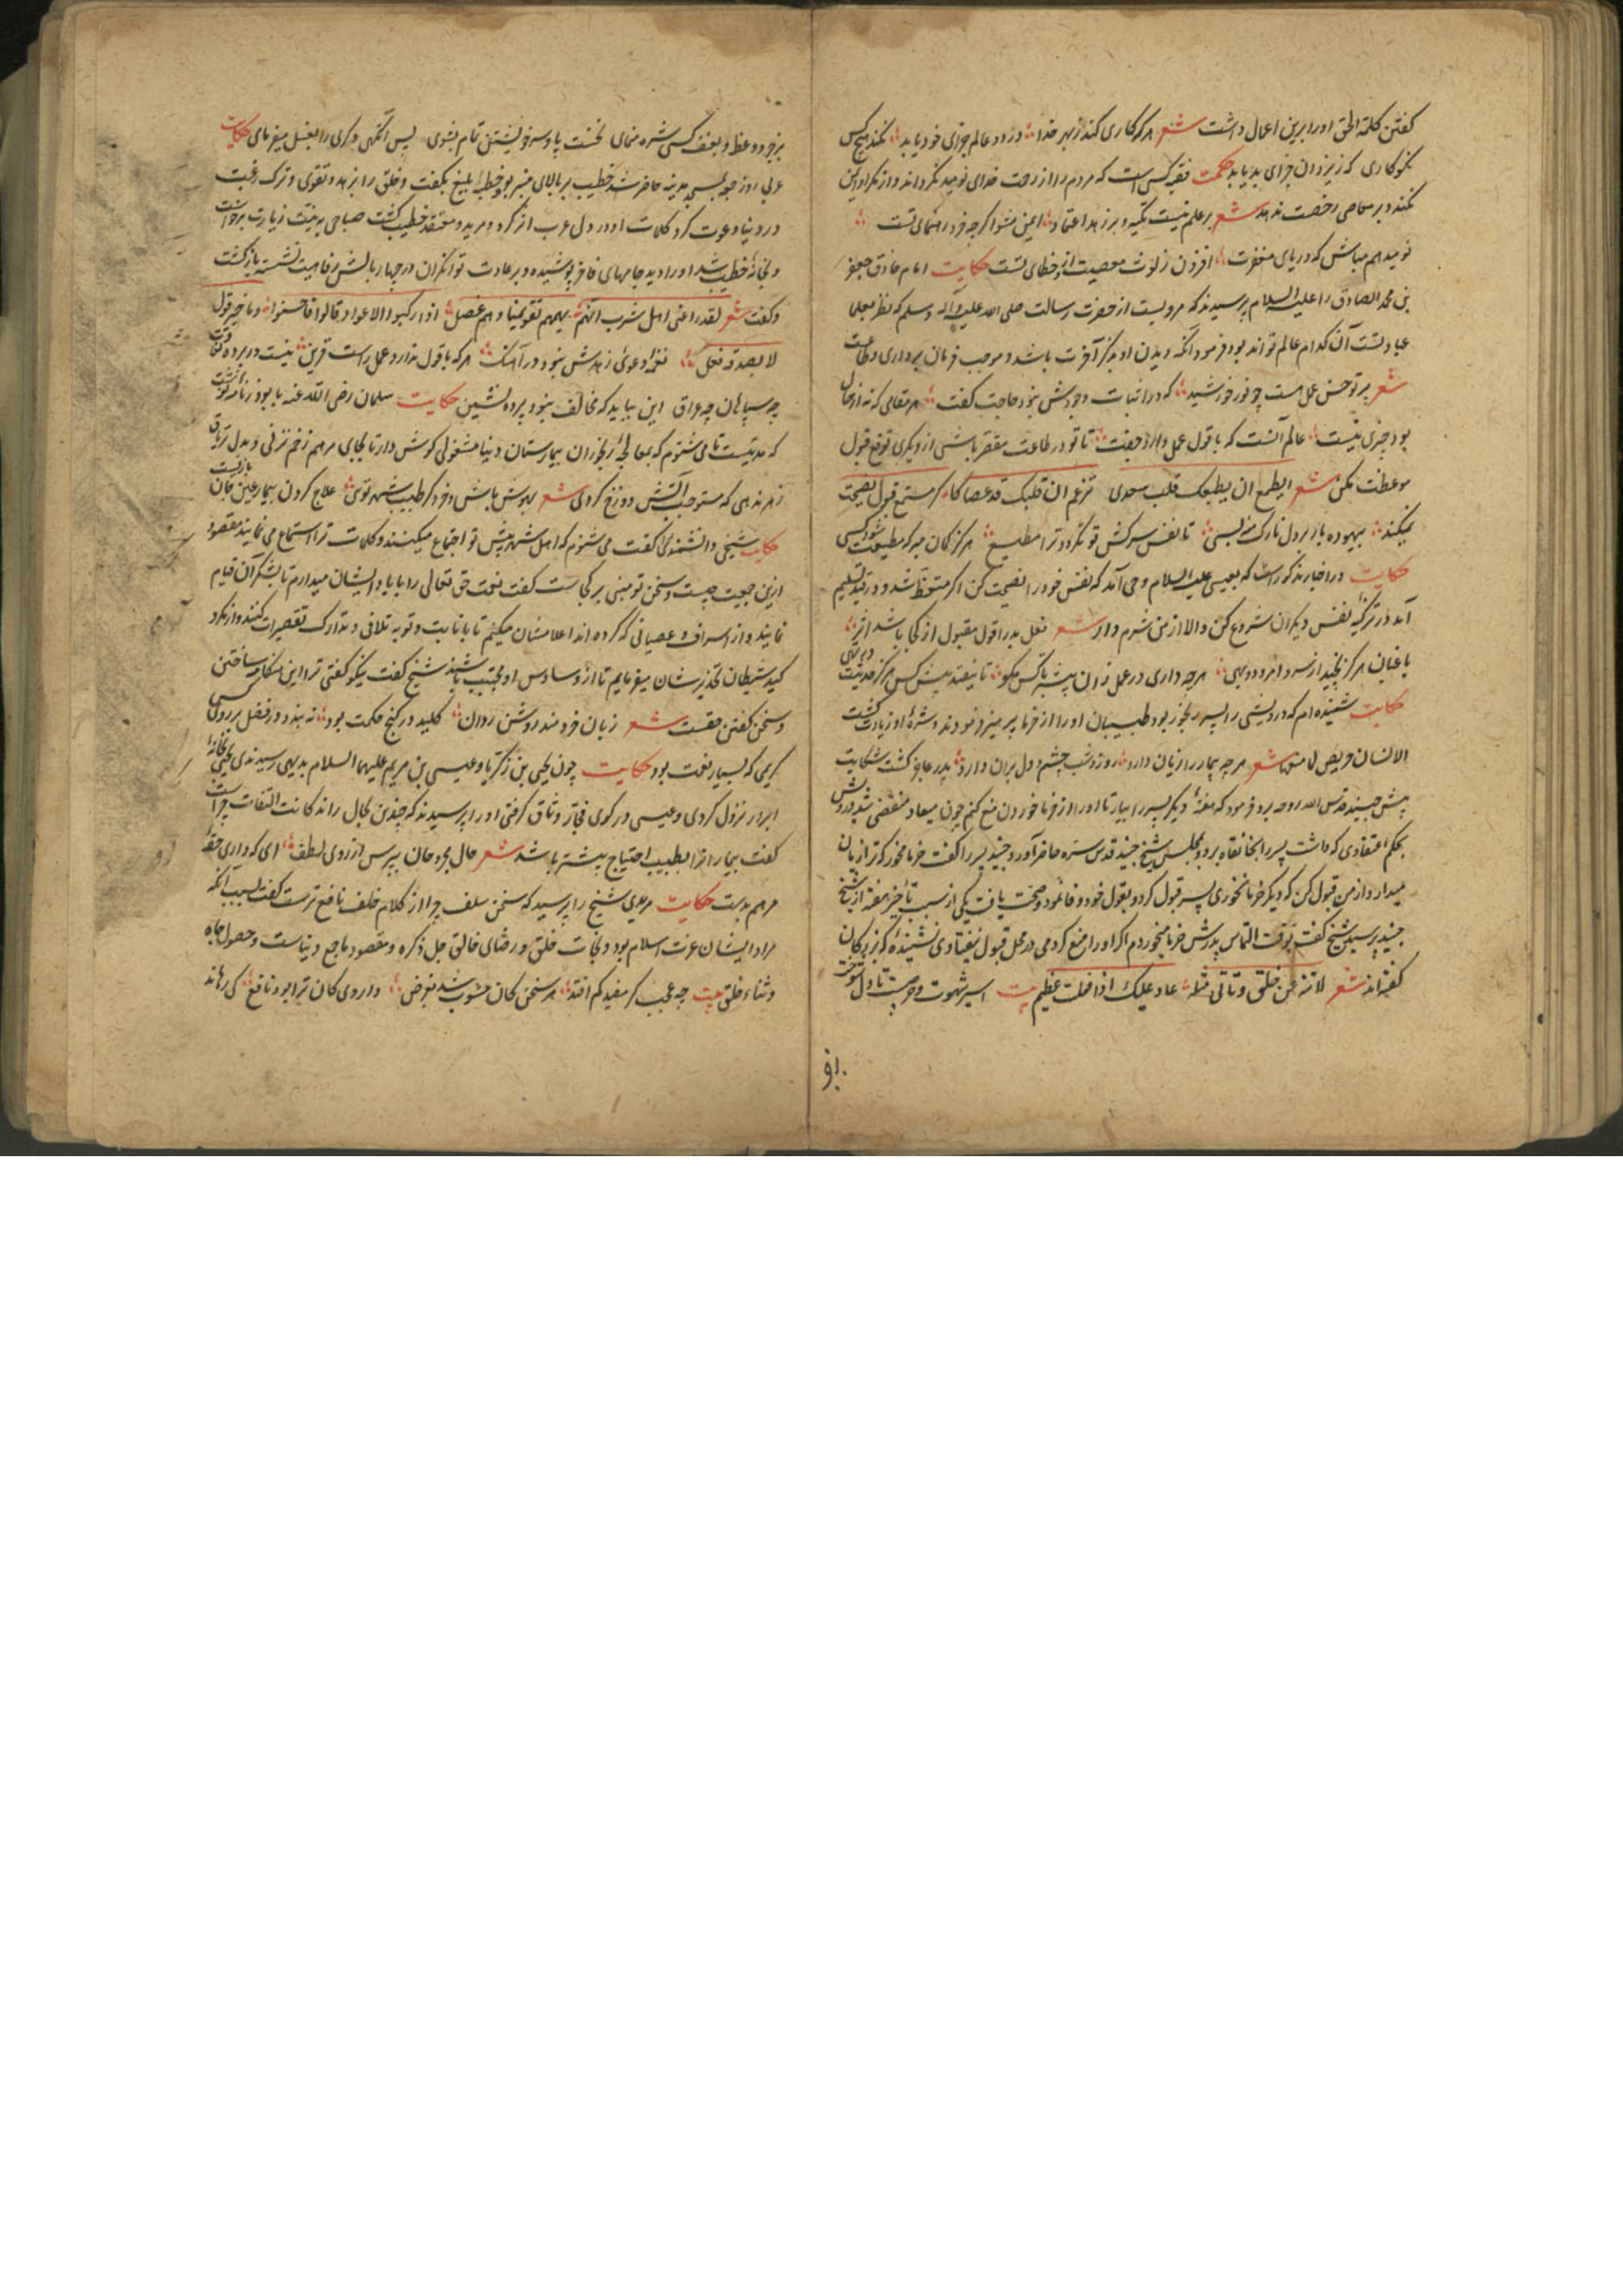 گفتن کلمة الحق اورا برین اعمال داشت شعر هر که کاری کند ز بهر خدا در دو عالم جزای خود یابد نکند هیچ کس
نکوکاری که ز یزدان جزای بد یابد حکمت فقیه کسی است که مردم را از رحمت خدای نومید نگرداند و از مکر او ایمن
نکند و بر معاصی رخصت ندهد شعر بر علم نیست تکیه و بر زهد اعتماد ایمن مشو اگرچه خرد رهنمای تست
نومید هم مباش که دریای مغفرت افزون ز لوث معصیت و خطای تست حکایت امام صادق جعفر
بن محمد الصادق را علیه السلام پرسیدند که مرویست از حضرت رسالت صلی الله علیه و اله وسلم که نظر بعلما
عبادتست آن کدام عالم تواند بود فرمود آنکه دیدن او مذکر آخرت باشد و موجب فرمان برداری و طاعت
شعر پرتو حسن عمل هست چو نور خورشید که در اثبات وجودش نبود حاجت گفت هر مقالی که نه از حال
بود چیزی نیست عالم آنست که با قول عمل دارد جفت تا تو در طاعت مقصر باشی از دیگری توقع قبول
موعظت مکن شعر ایطمع ان یطیعک قلب سعدی تزعم ان قلبک قد عصاکا گر مستمع قبول نصیحت
نمیکند بیهوده بار بر دل نازک منه بسی تا نفس سرکش تو نگردد ترا مطیع هرگز گمان مبر که مطیعت شود کسی
حکایت در اخبار مذکور است که بعیسی علیه السلام وحی آمد که نفس خود را نصیحت کن اگر متعظ شد و در قید تسلیم
آمد در تزکیه نفس دیگران شروع کن والا از من شرم دار شعر فعل بد را قول مقبول از کجا باشد اثر
باغبان هرگز نچیند از سرو امرود و بهی هرچه داری در عمل زان بیشتر با کس مگو تا نیفتد پیش کس هرگز حدیثت در تهی
حکایت شنیده ام که درویشی را پسر رنجور بود طبیبان او را از خرما پرهیز فرمودند و شره او زیادت گشت
الانسان حریص لما منع شعر هر چه بیمار را زیان دارد روز و شب چشم و دل بران دارد پدر عاجز گشت شکایت
پیش جنید قدس الله روحه برد فرمود که هفته دیگر پسر را بیار تا او را از خرما خوردن منع کنم چون میعاد منقضی شد درویش
بحکم اعتقادی که داشت پسر را بخانقاه برد و بمجلس شیخ جنید قدس سره حاضر آورد جنید پسر را گفت خرما مخور که ترا زیان
میدارد از من قبول کن که دیگر خرما نخوری پسر قبول کرد و بقول خود وفا نمود و صحت یافت یکی از سبب تاخیر هفته از شیخ
جنید پرسید شیخ گفت بوقت التماس پدرش خرما میخوردم اگر او را منع کردمی در محل قبول نیفتادی نشنیده که بزرگان
گفته اند شعر لا تنه عن خلق و تاتی مثله عار علیک اذا فعلت عظیم بیت اسیر شهوت و حرصیت تا دل تو خت
بر
بزجر و وعظ و بعنف کسی شره منمای نخست پا و سر خویشتن تمام بشوی پس انگهی دگری را بغسل میفرمای حکایت
عربی روز جمعه بمسجد مدینه حاضر شد خطیب بر بالای منبر بود خطبه ای بلیغ بگفت و خلق را بزهد و تقوی و ترک رغبت
در دنیا دعوت کرد کلمات او در دل عرب اثر کرد و مرید و معتقد خطیب گشت صباحی به نیت زیارت برخاست
و بخانه خطیب شد او را دید جامهای فاخر پوشیده و بر عادت توانگران در چهار بالش رفاهیت نشسته بازگشت
و گفت شعر لقد راعنی اهل شرب انهم یهمهم تقویمنا و هم عصل اذا رکبوا الاعواد قالوا فاحسنوا و ما خیر قول
لا یصدقه فعل نغمه دعوی زهدش نبود در آهنگ هر که با قول ندارد عمل راست قرین نیست در پرده وقت
چه سپاهان چه عراق این بباید که مخالف نبود پرده نشین حکایت سلمان رضی الله عنه بابو درداء نامه نوشت
که مدتیست تا می شنوم که بمعالجه رنجوران بیمارستان دنیا مشغولی گوش دار تا بجای مرهم زخم نزنی و بدل تریاق
زهر ندهی که مستوجب آتش دوزخ گردی شعر بهوش باش و خرد گر طبیب شهر توئی علاج کردن بیمار عین جان بازیست
حکایت شیخی دانشمندی را گفت می شنوم که اهل شهر پیش تو اجتماع میکنند و کلمات ترا استماع می نمایند مقصود
ازین جمعیت چیست و سخن تو مبنی بر کجاست گفت نعمت حق تعالی را بایاد ایشان میدارم تا بشکر آن قیام
نمایند و از اسراف و عصیانی که کرده اند اعلامشان میکنم تا بانابت و توبه تلافی و تدارک تقصیرات کنند و از مکر و
کید شیطان تحذیرشان میفرمایم تا از وساوس او مجتنب باشند شیخ گفت نیکو گفتی ترا این مکابر ساختن
و سخن گفتن حقست شعر زبان خردمند روشن روان کلید در گنج حکمت بود نه بندد در فضل بر روی کسی
کریمی که بسیار نعمت بود حکایت چون یحیی بن زکریا و عیسی بن مریم علیهما السلام بدیهی رسیدندی یحیی بخانه
ابرار نزول کردی و عیسی در کوی فجار وثاق گرفتی او را پرسیدند که چندین بحال راند کانت التفات چراست
گفت بیمار را بطبیب احتیاج بیشتر باشد شعر حال مجروحان بپرس از روی لطف ای که داری حقه
مرهم بدست حکایت مریدی شیخ را پرسید که سخن سلف چرا از کلام خلف نافع ترست گفت بسبب آنکه
مراد ایشان عزت اسلام بود و نجات خلق و رضای خالق جل ذکره و مقصود ما جمع دنیاست و حصول جاه
و ثناء خلق بیت چه عجب گر مفید کم افتد هر سخن کان مشوب شد بغرض داروی کان ترا بود نافع کی رهاند